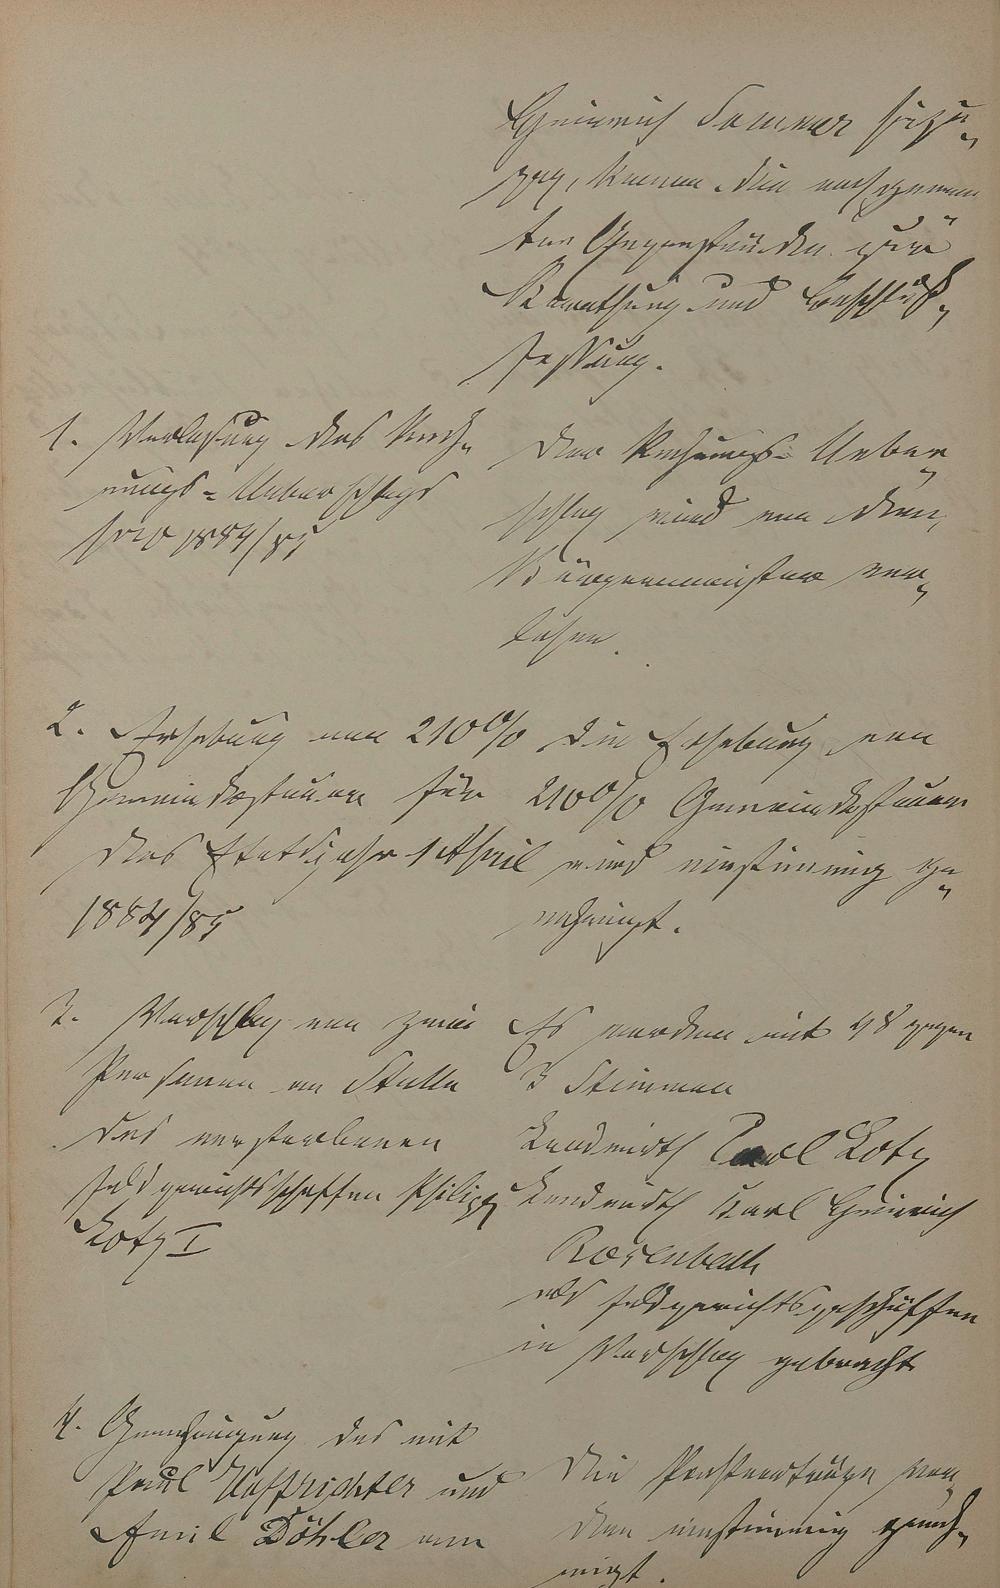 Heinrich Sommer hinzu„
zog, kamen die nachgenann
ten Gegenstände zur
Berathung und Beschluß„
fassung.
1. Verlesung des Rech„
nungs-Ueberschlags
pro 1884/85
Der Rechnungs-Ueber„
schlag wird von dem
Bürgermeister ver„
lesen.
2. Erhebung von 210%
Gemeindesteuern für
das Etatsjahr 1 April
1884/85
Die Erhebung von
210% Gemeindesteuern
wird einstimmig ge„
nehmigt.
3. Vorschlag von zwei
Personen an Stelle
des verstorbenen
Feldgerichtsschöffen Philipp
Lotz I
Es werden mit gegen
3 Stimmen
Landwirth Carl Lotz
Landwirth Karl Heinrich
Rosenbach
als Feldgerichtsgeschöffen
in Vorschlag gebracht
4. Genehmigung des mit
Paul und
Emil Döhler
Die Pachtverträge wer„
den einstimmig geneh„
migt.